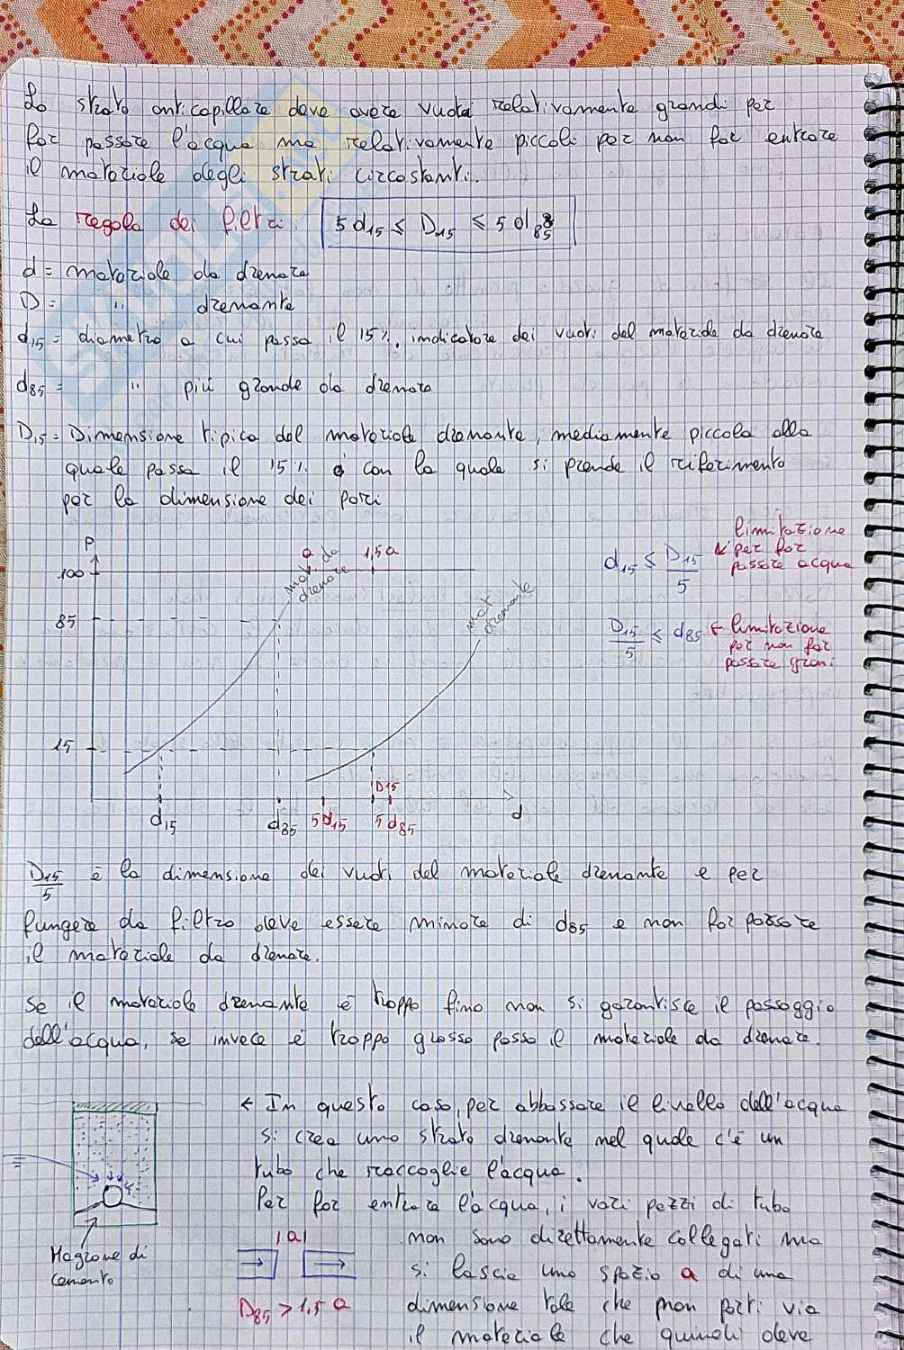 Lo strato anticapillare deve avere vuoti relativamente grandi per
far passare l'acqua ma relativamente piccoli per non far entrare
il materiale degli strati circostanti.
La regola dei filtri: 5 d15 ≤ D15 ≤ 5 d85
d = materiale da drenare
D = " drenante
d15 = diametro a cui passa il 15%, indicatore dei vuoti del materiale da drenare
d85 = " più grande da drenare
D15 = Dimensione tipica del materiale drenante, mediamente piccola alla
quale passa il 15% con la quale si prende il riferimento
per la dimensione dei pori
P
100
85
15
a
1,5 a
mat da
drenare
mat
drenante
d15
d85
5 d15
D15
5 d85
d
d15 ≤ D15/5
limitazione
per far
passare acqua
D15/5 ≤ d85
← limitazione
per non far
passare grani
D15/5 è la dimensione dei vuoti del materiale drenante e per
fungere da filtro deve essere minore di d85 e non far passare
il materiale da drenare.
Se il materiale drenante è troppo fino non si garantisce il passaggio
dell'acqua, se invece è troppo grosso passa il materiale da drenare.
← In questo caso, per abbassare il livello dell'acqua
si crea uno strato drenante nel quale c'è un
tubo che raccoglie l'acqua.
Per far entrare l'acqua, i vari pezzi di tubo
non sono direttamente collegati ma
si lascia uno spazio a di una
dimensione tale che non porti via
il materiale che quindi deve
Magrone di
cemento
|a|
D85 > 1,5 a